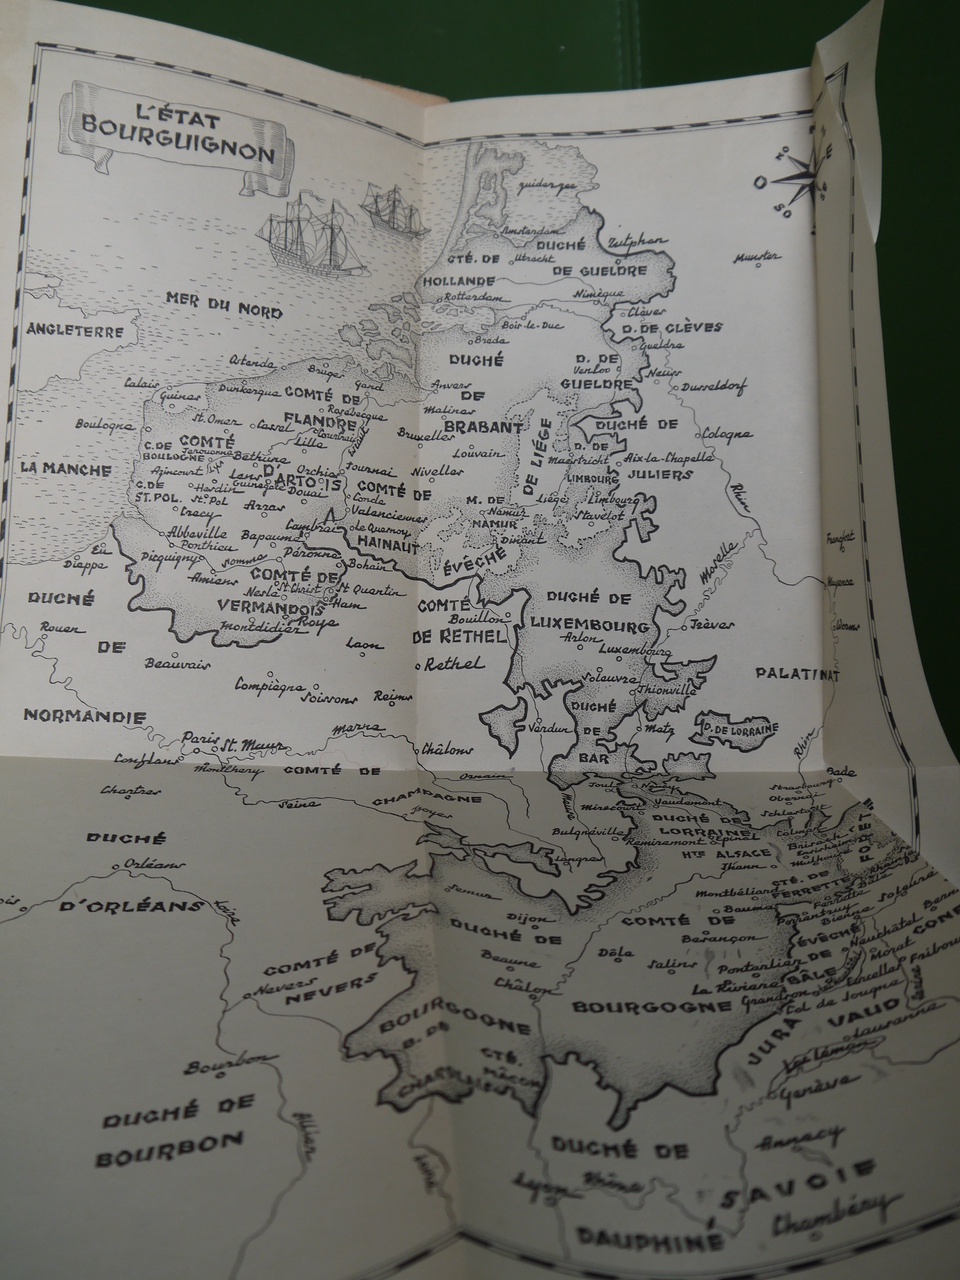 L'ÉTAT
BOURGUIGNON
MER DU NORD
ANGLETERRE
LA MANCHE
Zuiderzee
Amsterdam
DUCHÉ
Zutphen
CTÉ. DE
Utrecht
DE GUELDRE
HOLLANDE
Rotterdam
Nimègue
Munster
Bois-le-Duc
Clèves
D. DE CLÈVES
Breda
Gueldre
DUCHÉ
D. DE
Venloo
GUELDRE
Neuss
Dusseldorf
Ostende
Bruges
Gand
Anvers
DE
Calais
Guines
Dunkerque
COMTÉ DE
Rosebecque
FLANDRE
Malines
BRABANT
Boulogne
St. Omer
Cassel
Courtrai
Lille
Bruxelles
Louvain
DE LIÉGE
DUCHÉ DE
Cologne
C. DE
BOULOGNE
COMTÉ
Térouanne
Béthune
D'ARTOIS
Orchies
Tournai
Nivelles
Maestricht
D. DE
LIMBOURG
Aix-la-Chapelle
JULIERS
Azincourt
Lens
Guinegate
Douai
Hesdin
C. DE
ST. POL.
St. Pol
Crécy
Arras
COMTÉ DE
HAINAUT
Condé
Valenciennes
le Quesnoy
M. DE
NAMUR
Namur
Liége
Limbourg
Stavelot
Dinant
ÉVÊCHÉ
Rhin
Moselle
Abbeville
Ponthieu
Bapaume
Cambrai
Eu
Dieppe
Picquigny
Somme
Péronne
Bohain
Amiens
COMTÉ DE
VERMANDOIS
Nesle
St Christ
St Quentin
Ham
Roye
Montdidier
DUCHÉ
DE
NORMANDIE
Rouen
Beauvais
Laon
Compiègne
Soissons
Reims
COMTÉ
DE RETHEL
Bouillon
Rethel
DUCHÉ DE
LUXEMBOURG
Arlon
Luxembourg
Trèves
Francfort
Mayence
Worms
PALATINAT
Soleuvre
Thionville
DUCHÉ
DE
BAR
Verdun
Metz
D. DE LORRAINE
Rhin
Paris
St. Maur
Marne
Châlons
Conflans
Montlhéry
COMTÉ DE
CHAMPAGNE
Ornain
Chartres
Seine
Troyes
Toul
Nancy
Meuse
Mirecourt
Vaudemont
DUCHÉ DE
LORRAINE
Bulgnéville
Remiremont
Epinal
Strasbourg
Bade
Obernai
Schlestadt
Colmar
Brisach
Ensisheim
Mulhouse
HTE ALSACE
Thann
DUCHÉ
D'ORLÉANS
Orléans
Loire
Langres
Semur
Dijon
DUCHÉ DE
BOURGOGNE
Beaune
Châlon
COMTÉ DE
BOURGOGNE
Montbéliard
Baume
Besançon
Dôle
Salins
Pontarlier
La Rivière
CTÉ. DE
FERRETTE
Ferrette
Bâle
Porrentruy
Bienne
Soleure
ÉVÊCHÉ
DE
BÂLE
Neuchâtel
Morat
Grandson
Col de Jougne
COMTÉ DE
NEVERS
Nevers
Bourbon
DUCHÉ DE
BOURBON
Allier
Loire
B. DE
CHAROLAIS
CTÉ.
MÂCON
JURA
VAUD
Lausanne
Lac Léman
Genève
DUCHÉ DE
SAVOIE
Annecy
Chambéry
Lyon
Rhône
DAUPHINÉ
NO
E
O
SO